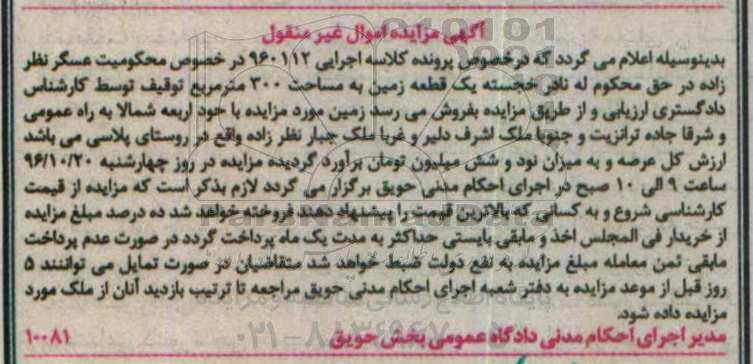 آگهی مزایده اموال غیر منقول
بدینوسیله اعلام می گردد که درخصوص پرونده کلاسه اجرایی ۹۶۰۱۱۲ در خصوص محکومیت عسگر نظر
زاده در حق محکوم له نادر خجسته یک قطعه زمین به مساحت ۳۰۰ مترمربع توقیف توسط کارشناس
دادگستری ارزیابی و از طریق مزایده بفروش می رسد زمین مورد مزایده با حود اربعه شمالا به راه عمومی
و شرقا جاده ترانزیت و جنوبا ملک اشرف دلیر و غربا ملک جبار نظر زاده واقع در روستای پلاسی می باشد
ارزش کل عرصه و به میزان نود و شش میلیون تومان برآورد گردیده مزایده در روز چهارشنبه ۹۶/۱۰/۲۰
ساعت ۹ الی ۱۰ صبح در اجرای احکام مدنی حویق برگزار می گردد لازم بذکر است که مزایده از قیمت
کارشناسی شروع و به کسانی که بالاترین قیمت را پیشنهاد دهند فروخته خواهد شد ده درصد مبلغ مزایده
از خریدار فی المجلس اخذ و مابقی بایستی حداکثر به مدت یک ماه پرداخت گردد در صورت عدم پرداخت
مابقی ثمن معامله مبلغ مزایده به نفع دولت ضبط خواهد شد متقاضیان در صورت تمایل می توانند ۵
روز قبل از موعد مزایده به دفتر شعبه اجرای احکام مدنی حویق مراجعه تا ترتیب بازدید آنان از ملک مورد
مزایده داده شود.
مدیر اجرای احکام مدنی دادگاه عمومی بخش حویق
۱۰۰۸۱